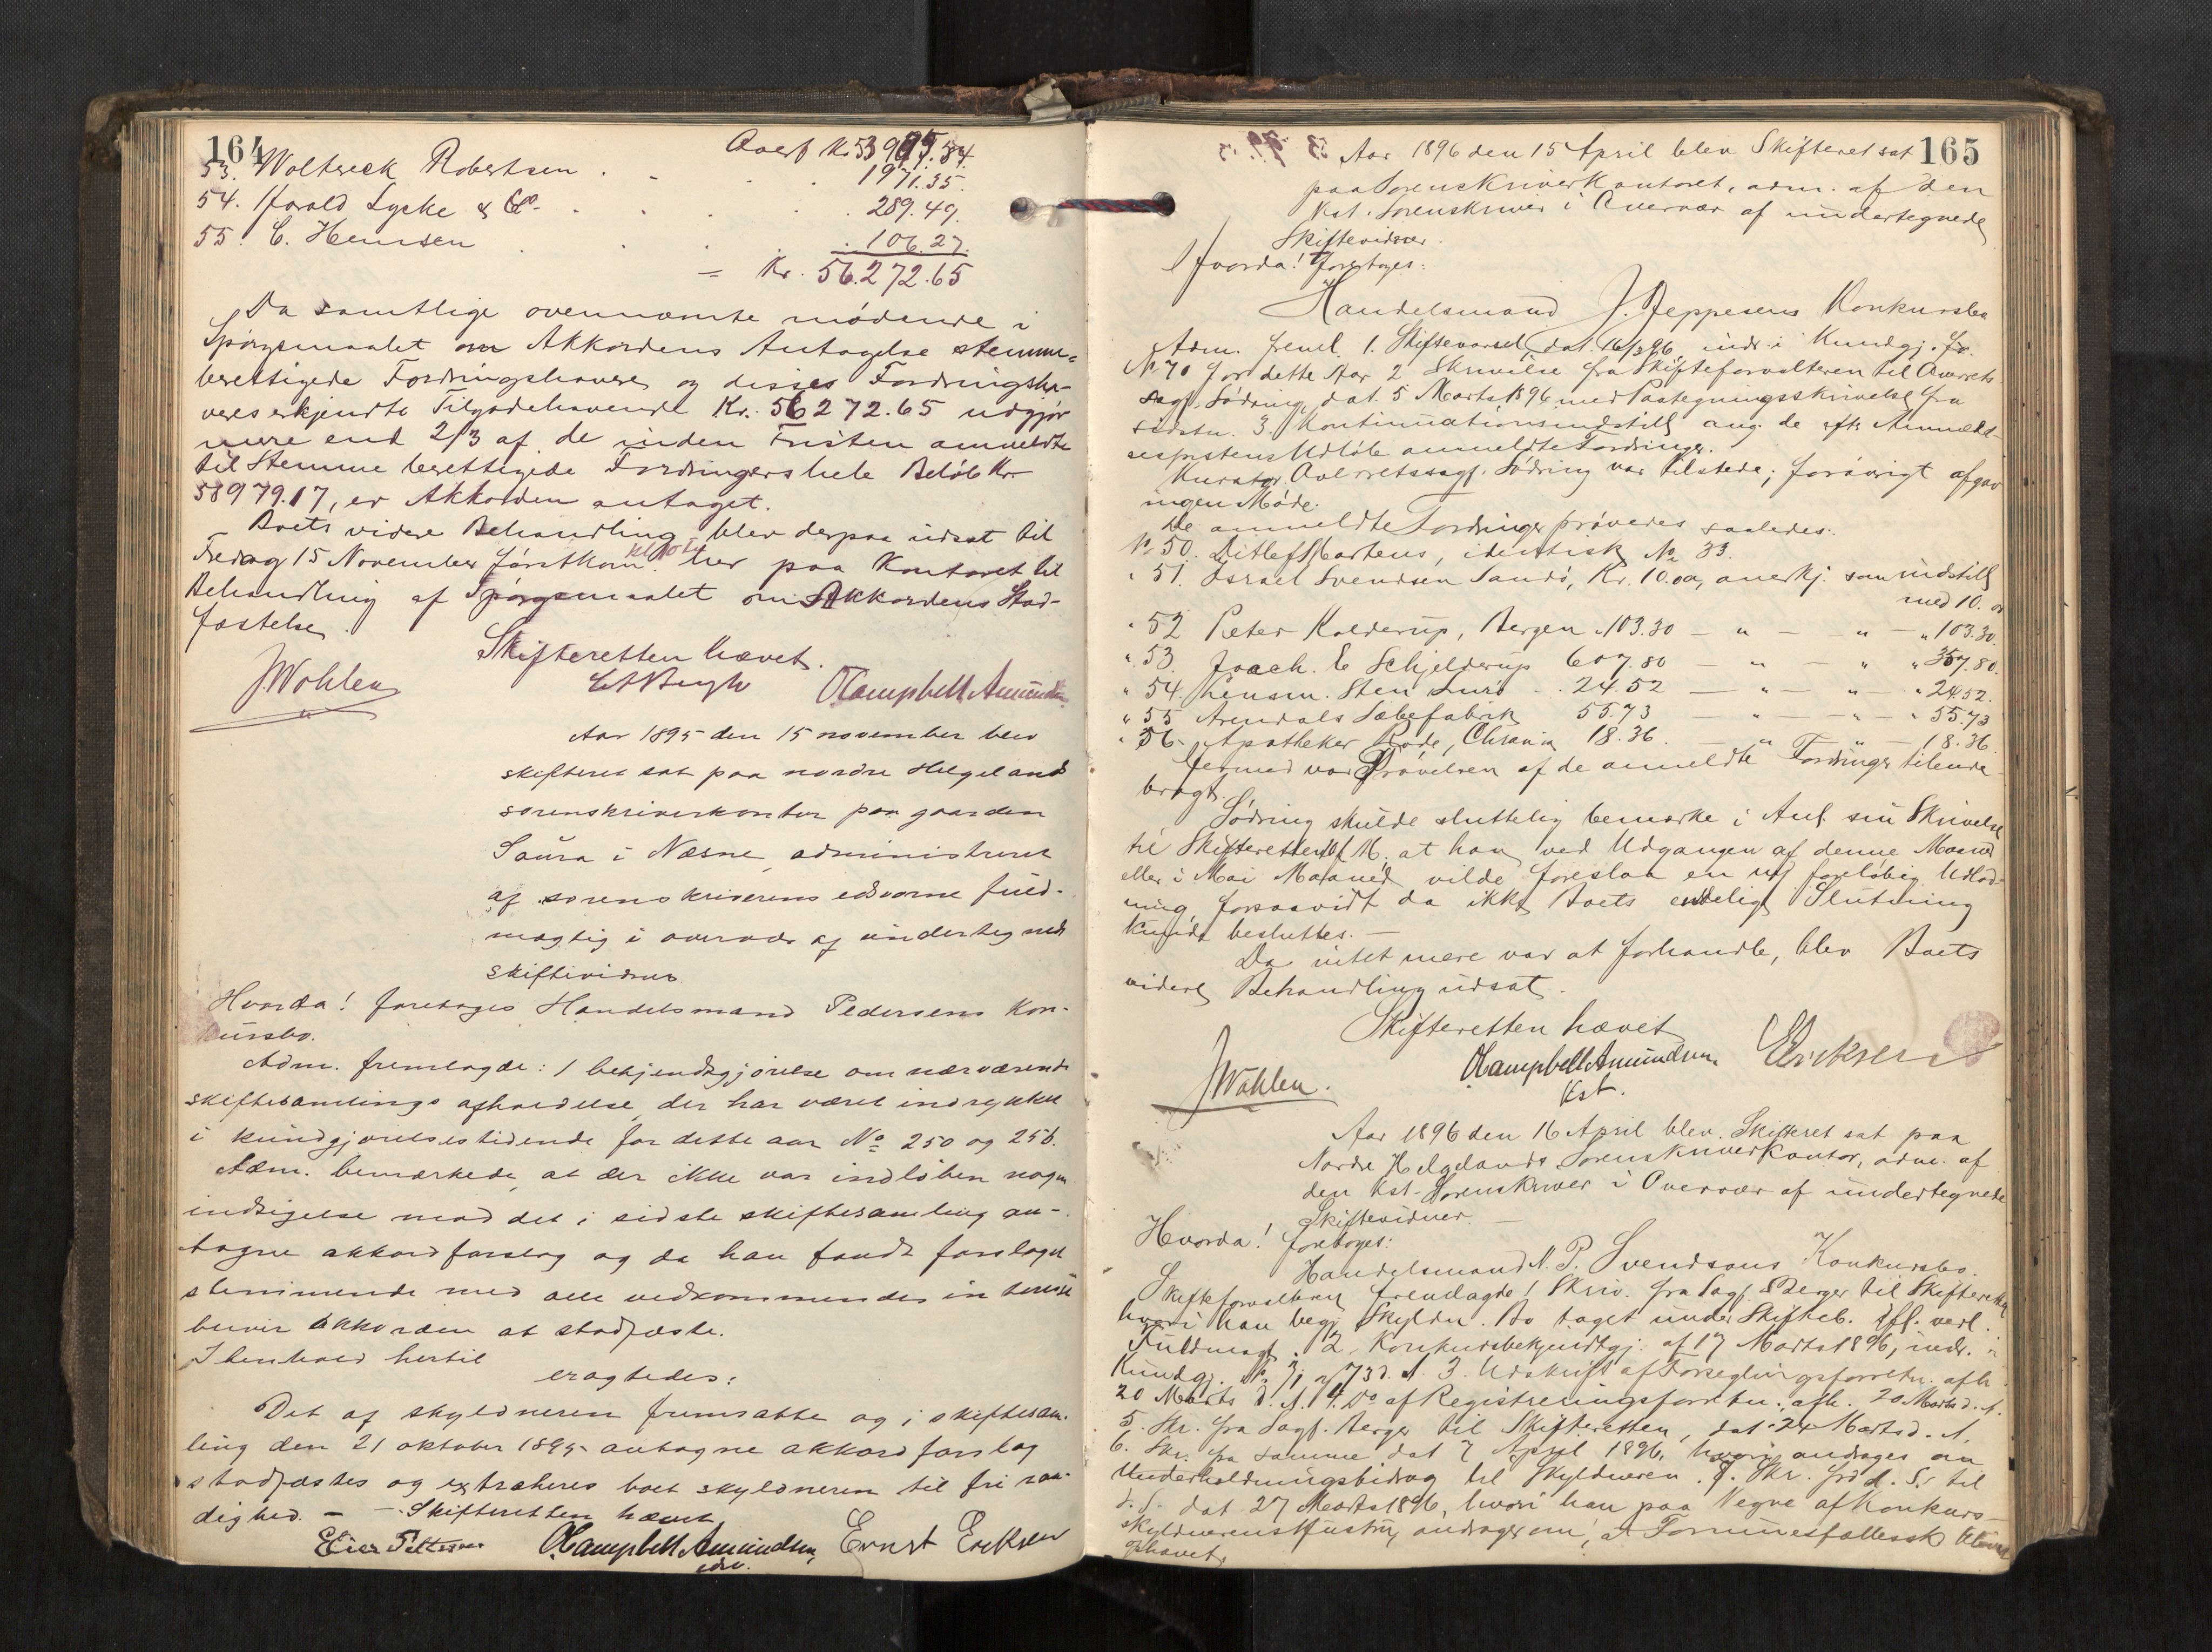 164
Overf Kr. 53905.54
53. Woltereck Robertsen . . . 1971.35.
54. Harald Lycke & Co. . . . . 289.49.
55. C. Hemsen . . . . 106.27.
= Kr. 56.272.65
Da samtlige ovennævnte mødende i
Spørgsmaalet om Akkordens Antagelse stemme-
berettigede Fordringshavere og disses Fordringsha-
veres erkjendte Tilgodehavende Kr. 56272.65 udgjør
mere end 2/3 af de inden Fristen anmeldte
til Stemme berettigede Fordringers hele Beløb Kr.
58979.17, er Akkorden antaget.
Boets videre Behandling blev derpaa udsat til
Fredag 15 November førstkom. her paa Kontoret til
Behandling af Spørgsmaalet om Akkordens Stad-
fæstelse.
Skifteretten hævet.
JWohlen OCampbell Amundsen
Aar 1895 den 15 november blev
skifteret sat paa nordre Helgelands
sorenskriverkontor paa gaarden
Saura i Næsne, administreret
af sorenskriverens edsvorne fuld-
mægtig i overvær af undertegnede
skiftevidner
Hvorda! foretoges Handelsmand Pedersens kon-
kursbo.
Adm. fremlagde: 1 bekjendtgjørelse om nærværende
skiftesamlings afholdelse, der har været indrykket
i kundgjørelsestidende for dette aar No 250 og 256.
Adm. bemærkede, at der ikke var indløben nogen
indsigelse mod det i sidste skiftesamling an-
tagne akkordforslag og da han fandt forslaget
stemmende med alle vedkommendes interesse
burde akkorden at stadfæste.
I henhold hertil
eragtedes:
Det af skyldneren fremsatte og i skiftesam-
ling den 21 oktober 1895 antagne akkordforslag
stadfæstes og extraderes boet skyldneren til fri raa-
dighed. — Skifteretten hævet
Eier Pettersen OCampbell Amundsen, Ernst Eriksen
edsv.
165
Aar 1896 den 15 April blev Skifteret sat
paa Sorenskriverkontoret, adm. af den
kst. Sorenskriver i Overvær af undertegnede
Skiftevidner.
Hvorda! foretoges:
Handelsmand J. Jeppesens Konkursbo
Adm. freml. 1. Skiftevarsel, dat. 16/3 96, indr. i Kundgj. for
No 70 for dette Aar 2 Skrivelse fra Skifteforvalteren til Overrets
sagf. Sødring, dat. 5 Marts 1896 med Paategningsskrivelse fra
sidstn. 3. Kontinuationsindstill. ang. de efter Anmeld-
sesfristens Udløb anmeldte Fordringer.
Kurator Overretssagf. Sødring var tilstede; forøvrigt afgav
ingen Møde.
De anmeldte Fordringer prøvedes saaledes:
No 50. Ditlef Martens, identisk No 33.
" 51. Israel Svendsen Sandø, Kr. 10.00, anerkj. som indstill
med 10. 00
" 52 Peter Kolderup, Bergen " 103.30 — " — " — " 103.30
" 53. Joach. E Schjelderup 607.80 — " — " " 357.80
" 54. Lensm. Sten Lurø . . 24.52 — " — " — " 24.52.
" 55 Arendals Sæbefabrik 55.73 — " — " — " 55.73
" 56. Apotheker Rode, Chrania 18.36. — " — " — 18.36.
Hermed var Prøvelsen af de anmeldte Fordringer tilende-
bragt.
Sødring skulde sluttelig bemærke i Anl. sin Skrivelse
til Skifteretten af M. at han ved Udgangen af denne Maaned
eller i Mai Maaned vilde foreslaa en ny foreløbig Udlod-
ning, forsaavidt da ikke Boets endelige Slutning
kunde besluttes. —
Da intet mere var at forhandle, blev Boets
videre Behandling udsat.
Skifteretten hævet
JWohlen. OCampbell Amundsen EEriksen
kst.
Aar 1896 den 16 April blev Skifteret sat paa
Nordre Helgelands Sorenskriverkontor, adm. af
den kst. Sorenskriver i Overvær af undertegnede
Skiftevidner. —
Hvorda! foretoges:
Handelsmand N. P. Svendsens Konkursbo.
Skifteforvalteren fremlagde 1 Skriv. fra Sagf. Berger til Skifteretten
hvori han begj. Skyldn. Bo taget under Skifteb. ifl. vedl.
Fuldmagt. 2, Konkursbekjendtgj. af 17 Marts 1896, indr. i
Kundgj. No 71 og 73 d. A. 3. Udskrift af Forseglingsforretn. afh.
20 Marts d. A. 4. Do af Registreringsforretn. afh. 20 Marts d. A.
5. Skr. fra Sagf. Berger til Skifteretten, dat. 24 Marts d. A.
6. Skr. fra samme dat 7 April 1896, hvori andrages om
Underholdningsbidrag til Skyldneren. 7. Skr. fra d. S. til
d. S. dat 27 Marts 1896, hvori han paa Vegne af Konkurs-
skyldnerens Hustru andrager om, at Formuesfællessk. bliver
ophævet.